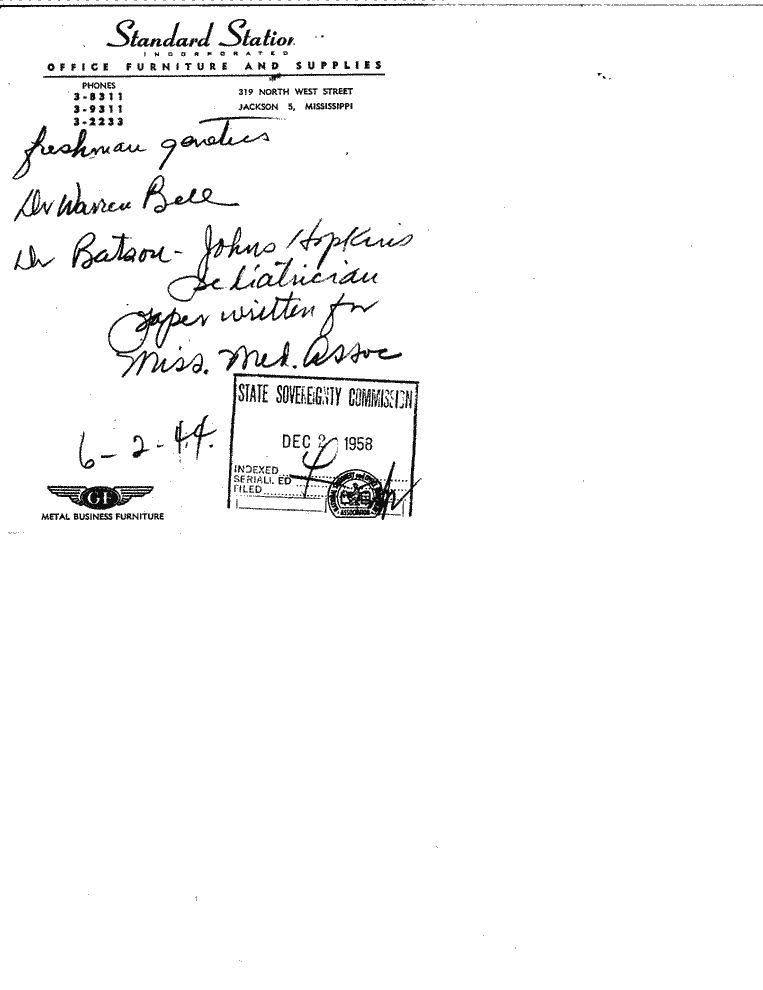 Standard Station
INCORPORATED
OFFICE FURNITURE AND SUPPLIES
PHONES
3-8311
3-9311
3-2233
319 NORTH WEST STREET
JACKSON 5, MISSISSIPPI
freshman genetics
Dr Warren Bell
Dr Batson - Johns Hopkins
Pediatrician
paper written for
Miss. Med. Assoc
STATE SOVEREIGNTY COMMISSION
DEC 2 1958
INDEXED
SERIALIZED
FILED
ASSOCIATION
6-2-44.
GF
METAL BUSINESS FURNITURE